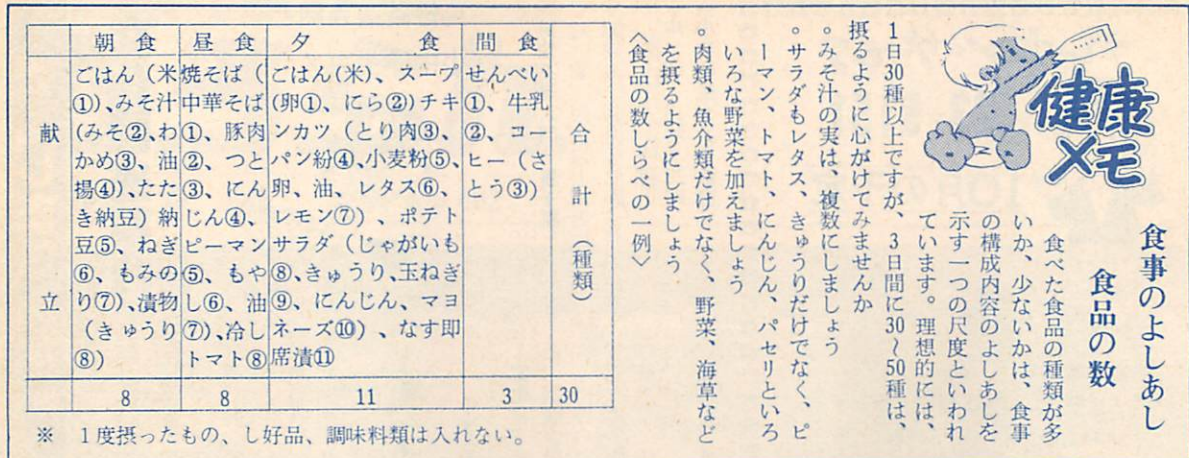 健康
メモ
食事のよしあし
食品の数
食べた食品の種類が多
いか、少ないかは、食事
の構成内容のよしあしを
示す一つの尺度といわれ
ています。理想的には、
1日30種以上ですが、3日間に30~50種は、
摂るように心がけてみませんか
◦みそ汁の実は、複数にしましょう
◦サラダもレタス、きゅうりだけでなく、ピ
ーマン、トマト、にんじん、パセリといろ
いろな野菜を加えましょう
◦肉類、魚介類だけでなく、野菜、海草など
を摂るようにしましょう
〈食品の数しらべの一例〉
朝食
昼食
夕食
間食
合計(種類)
献立
ごはん(米
①)、みそ汁
(みそ②、わ
かめ③、油
揚④)、たた
き納豆)納
豆⑤、ねぎ
⑥、もみの
り⑦)、漬物
(きゅうり
⑧)
焼そば(
中華そば
①、豚肉
②、つと
③、にん
じん④、
ピーマン
⑤、もや
し⑥、油
⑦)、冷し
トマト⑧
ごはん(米)、スープ
(卵①、にら②)チキ
ンカツ(とり肉③、
パン粉④、小麦粉⑤、
卵、油、レタス⑥、
レモン⑦)、ポテト
サラダ(じゃがいも
⑧、きゅうり、玉ねぎ
⑨、にんじん、マヨ
ネーズ⑩)、なす即
席漬⑪
せんべい
①、牛乳
②、コー
ヒー(さ
とう③)
8
8
11
3
30
※ 1度摂ったもの、し好品、調味料類は入れない。